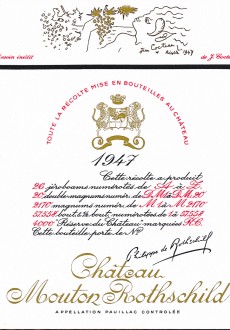 Jean Cocteau
1947
Dessin inédit
de J. Cocteau
TOUTE LA RÉCOLTE MISE EN BOUTEILLES AU CHÂTEAU
1947
Cette récolte a produit
numérotés de A à
20 double-magnums numér. de D.M.1 à D.M.20
2170 magnums numér. de M.1 à M.2170
bout. numérotées de 1 à
4000 Réserve du Château marquées R.C.
Cette bouteille porte le Nº
Philippe de Rothschild
Château
Mouton Rothschild
APPELLATION PAUILLAC CONTRÔLÉE